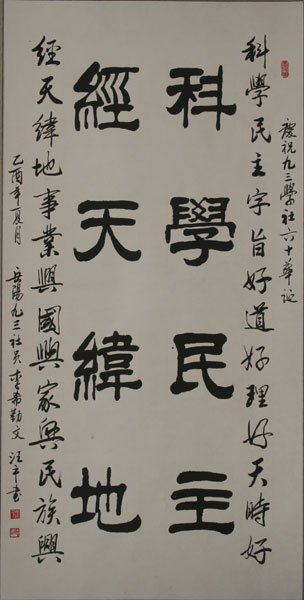 慶祝九三學社六十華誕
科學民主字旨好道好理好天時好
科學民主
經天緯地
經天緯地事業興國興家興民族興
乙酉年夏月 岳陽九三社員李希勤文 汪平書